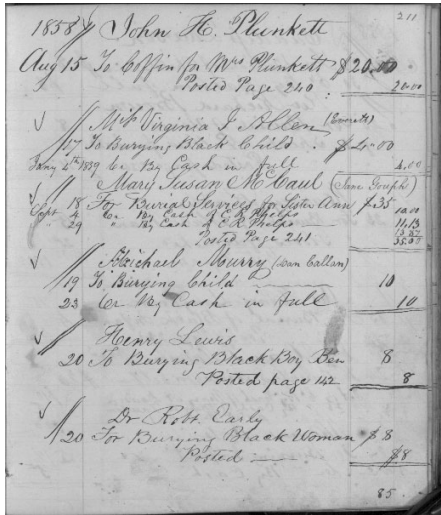 211
1858 John H. Plunkett
Aug 15 To Coffin for Mrs Plunkett $20.00
Posted Page 240 20.00
Miss Virginia J Allen (Everett)
17 To Burying Black Child $4.00
Jany 4th 1859 Cr By Cash in full 4.00
Mary Susan McCaul (Jane Joseph)
18 For Burial Services for Sister Ann $35
Sept 4 Cr By Cash of C R Phelps 10.00
" 29 " By Cash of C R Phelps 11.13
13.87
Posted Page 241 35.00
Michael Murry (Dan Callan)
19 To Burying Child 10
23 Cr By Cash in full 10
Henry Lewis
20 To Burying Black Boy Ben 8
Posted page 142 8
Dr Robt. Early
20 For Burying Black Woman $8
Posted $8
85